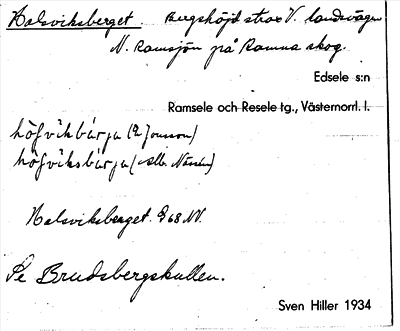 Holsviksberget. Bergshöjd strax V. landsvägen
N. Ramsjön på Ramna skog.
Edsele s:n
Ramsele och Resele tg., Västernorrl. l.
hòfvikbàrja (E Jonsson)
hòfviksbàrja (
Holsviksberget. 68 NV.
Se Brudsbergskullen.
Sven Hiller 1934